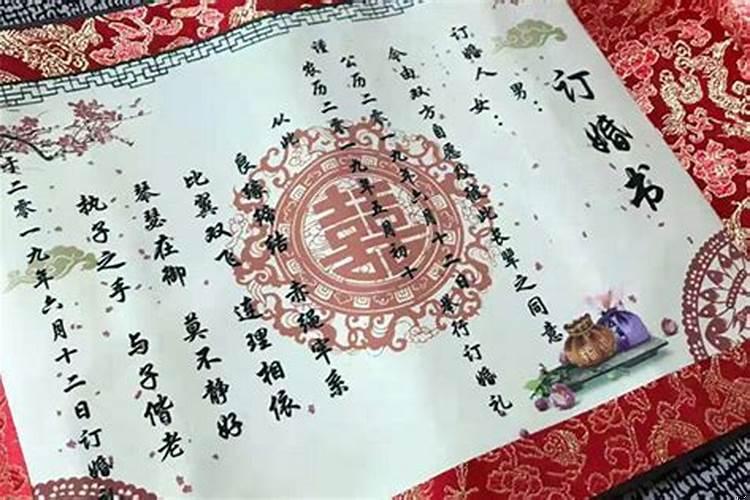 订婚书
男：
订婚人
女：
今由双方自愿及
彼此长辈之同意
公历二零一九年六月十二日举行订婚礼
谨
农历二零一九年五月初十
从此
良缘缔结 赤绳牢系
比翼双飞 连理相依
琴瑟在御 莫不静好
执子之手 与子偕老
于二零一九年六月十二日订婚